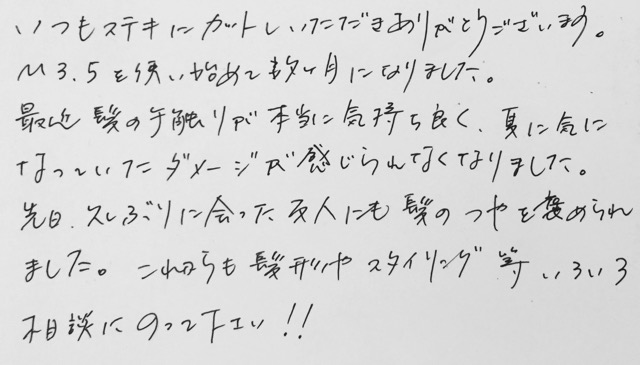 いつもステキにカットしいただきありがとうございます。
M3.5を使い始めて数ヶ月になりました。
最近髪の手触りが本当に気持ち良く、夏に気に
なっていたダメージが感じられなくなりました。
先日、久しぶりに会った友人にも髪のつやを褒められ
ました。これからも髪形やスタイリング等いろいろ
相談にのって下さい!!